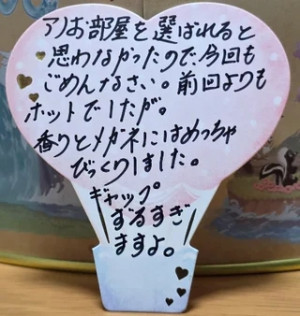 アノお部屋を選ばれると
思わなかったので、今回も
ごめんなさい。前回よりも
ホットでしたが。
香りとメガネにはめっちゃ
びっくりしました。
ギャップ。
ずるすぎ
ますよ。